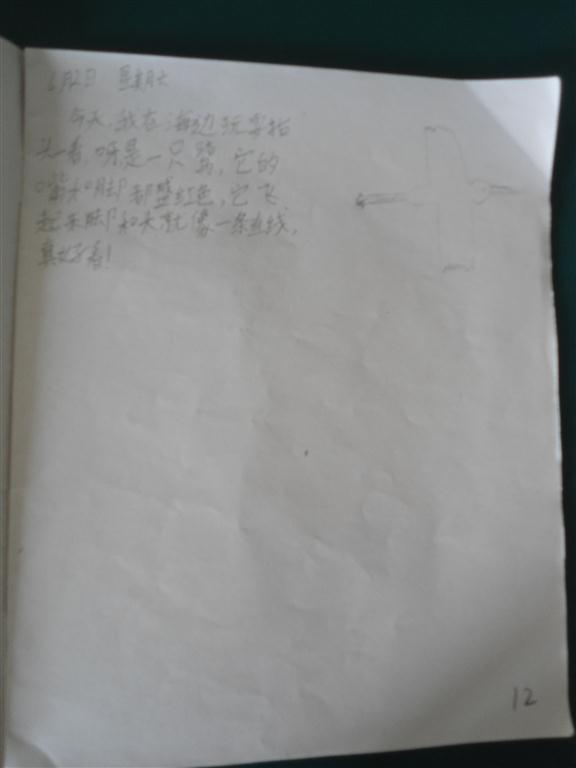 6月2日 星期六
今天,我在海边玩,抬
头一看,呀是一只鹭,它的
嘴和脚都是红色,它飞
起来脚和头就像一条直线,
真好看!
12